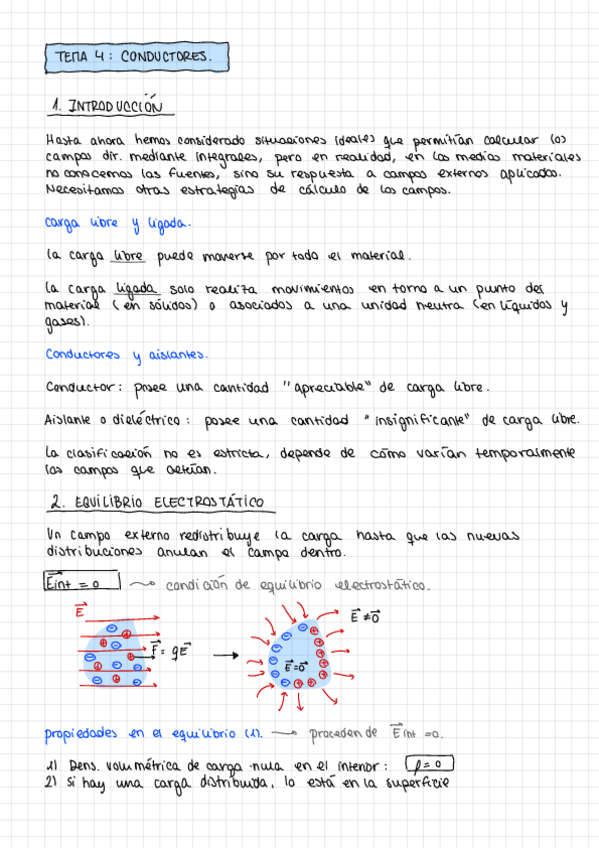 TEMA 4: CONDUCTORES.
1. INTRODUCCIÓN
Hasta ahora hemos considerado situaciones ideales que permitían calcular los
campos dir. mediante integrales, pero en realidad, en los medios materiales
no conocemos las fuentes, sino su respuesta a campos externos aplicados.
Necesitamos otras estrategias de cálculo de los campos.
carga libre y ligada.
la carga libre puede moverse por todo el material.
la carga ligada solo realiza movimientos en torno a un punto del
material (en sólidos) o asociados a una unidad neutra (en líquidos y
gases).
Conductores y aislantes.
Conductor: posee una cantidad "apreciable" de carga libre.
Aislante o dieléctrico: posee una cantidad "insignificante" de carga libre.
La clasificación no es estricta, depende de cómo varían temporalmente
los campos que actúan.
2. EQUILIBRIO ELECTROSTÁTICO
Un campo externo redistribuye la carga hasta que las nuevas
distribuciones anulan el campo dentro.
E⃗int = 0 → condición de equilibrio electrostático.
E⃗
F⃗ = qE⃗
E⃗ = 0⃗
E⃗ ≠ 0⃗
propiedades en el equilibrio (1). → proceden de E⃗int = 0.
1) Dens. volumétrica de carga nula en el interior: ρ = 0
2) si hay una carga distribuida, lo está en la superficie